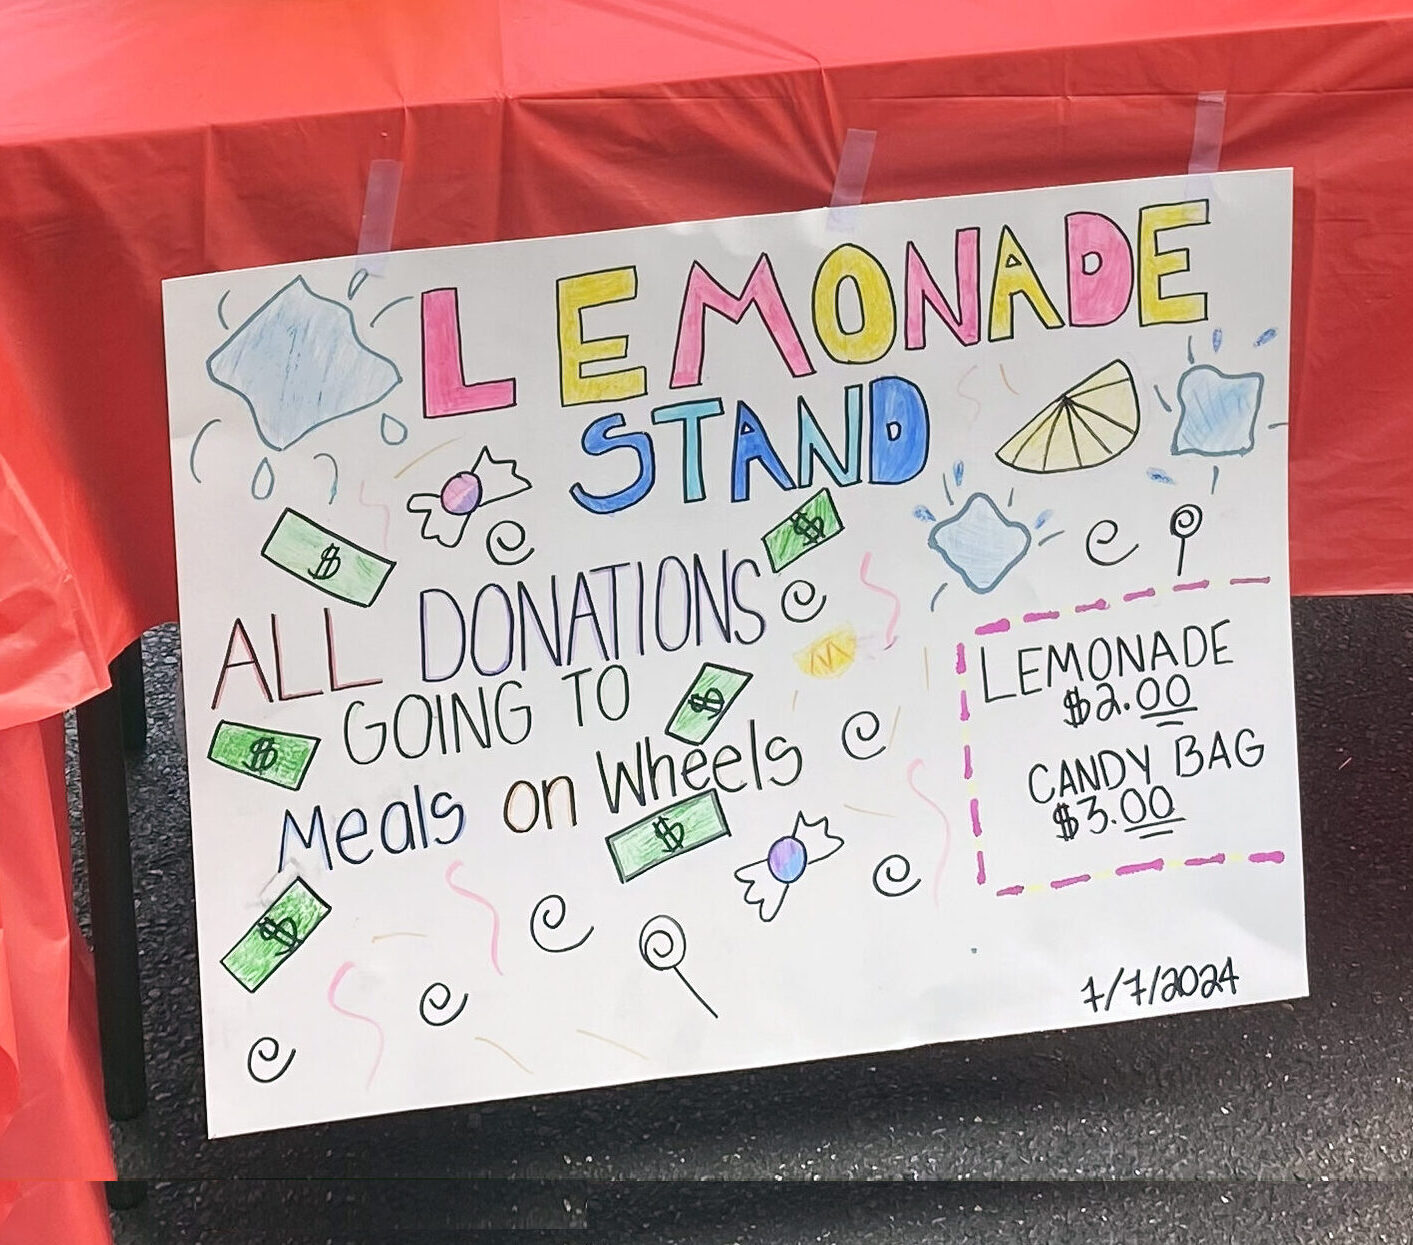 LEMONADE
STAND
ALL DONATIONS
GOING TO
Meals on Wheels
LEMONADE
$2.00
CANDY BAG
$3.00
7/7/2024
$
$
$
$
$
$